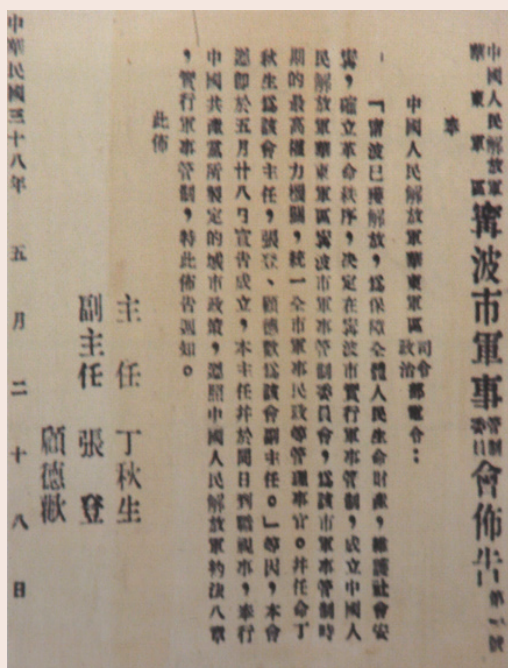 中國人民解放軍
華東軍區
甯波市軍事管制委員會佈告 第一號
奉
中國人民解放軍華東軍區司令部政治部電令：
「甯波已慶解放，爲保障全體人民生命財產，維護社會安
甯，確立革命秩序，決定在甯波市實行軍事管制，成立中國人
民解放軍華東軍區甯波市軍事管制委員會，爲該市軍事管制時
期的最高權力機關，統一全市軍事民政等管理事宜。并任命丁
秋生爲該會主任，張登、顧德歡爲該會副主任。」等因，本會
遵卽於五月廿八日宣告成立，本主任并於同日到職視事，奉行
中國共產黨所製定的城市政策，遵照中國人民解放軍約法八章
，實行軍事管制，特此佈告週知。
此佈
主任 丁秋生
副主任 張登
顧德歡
中華民國三十八年五月二十八日